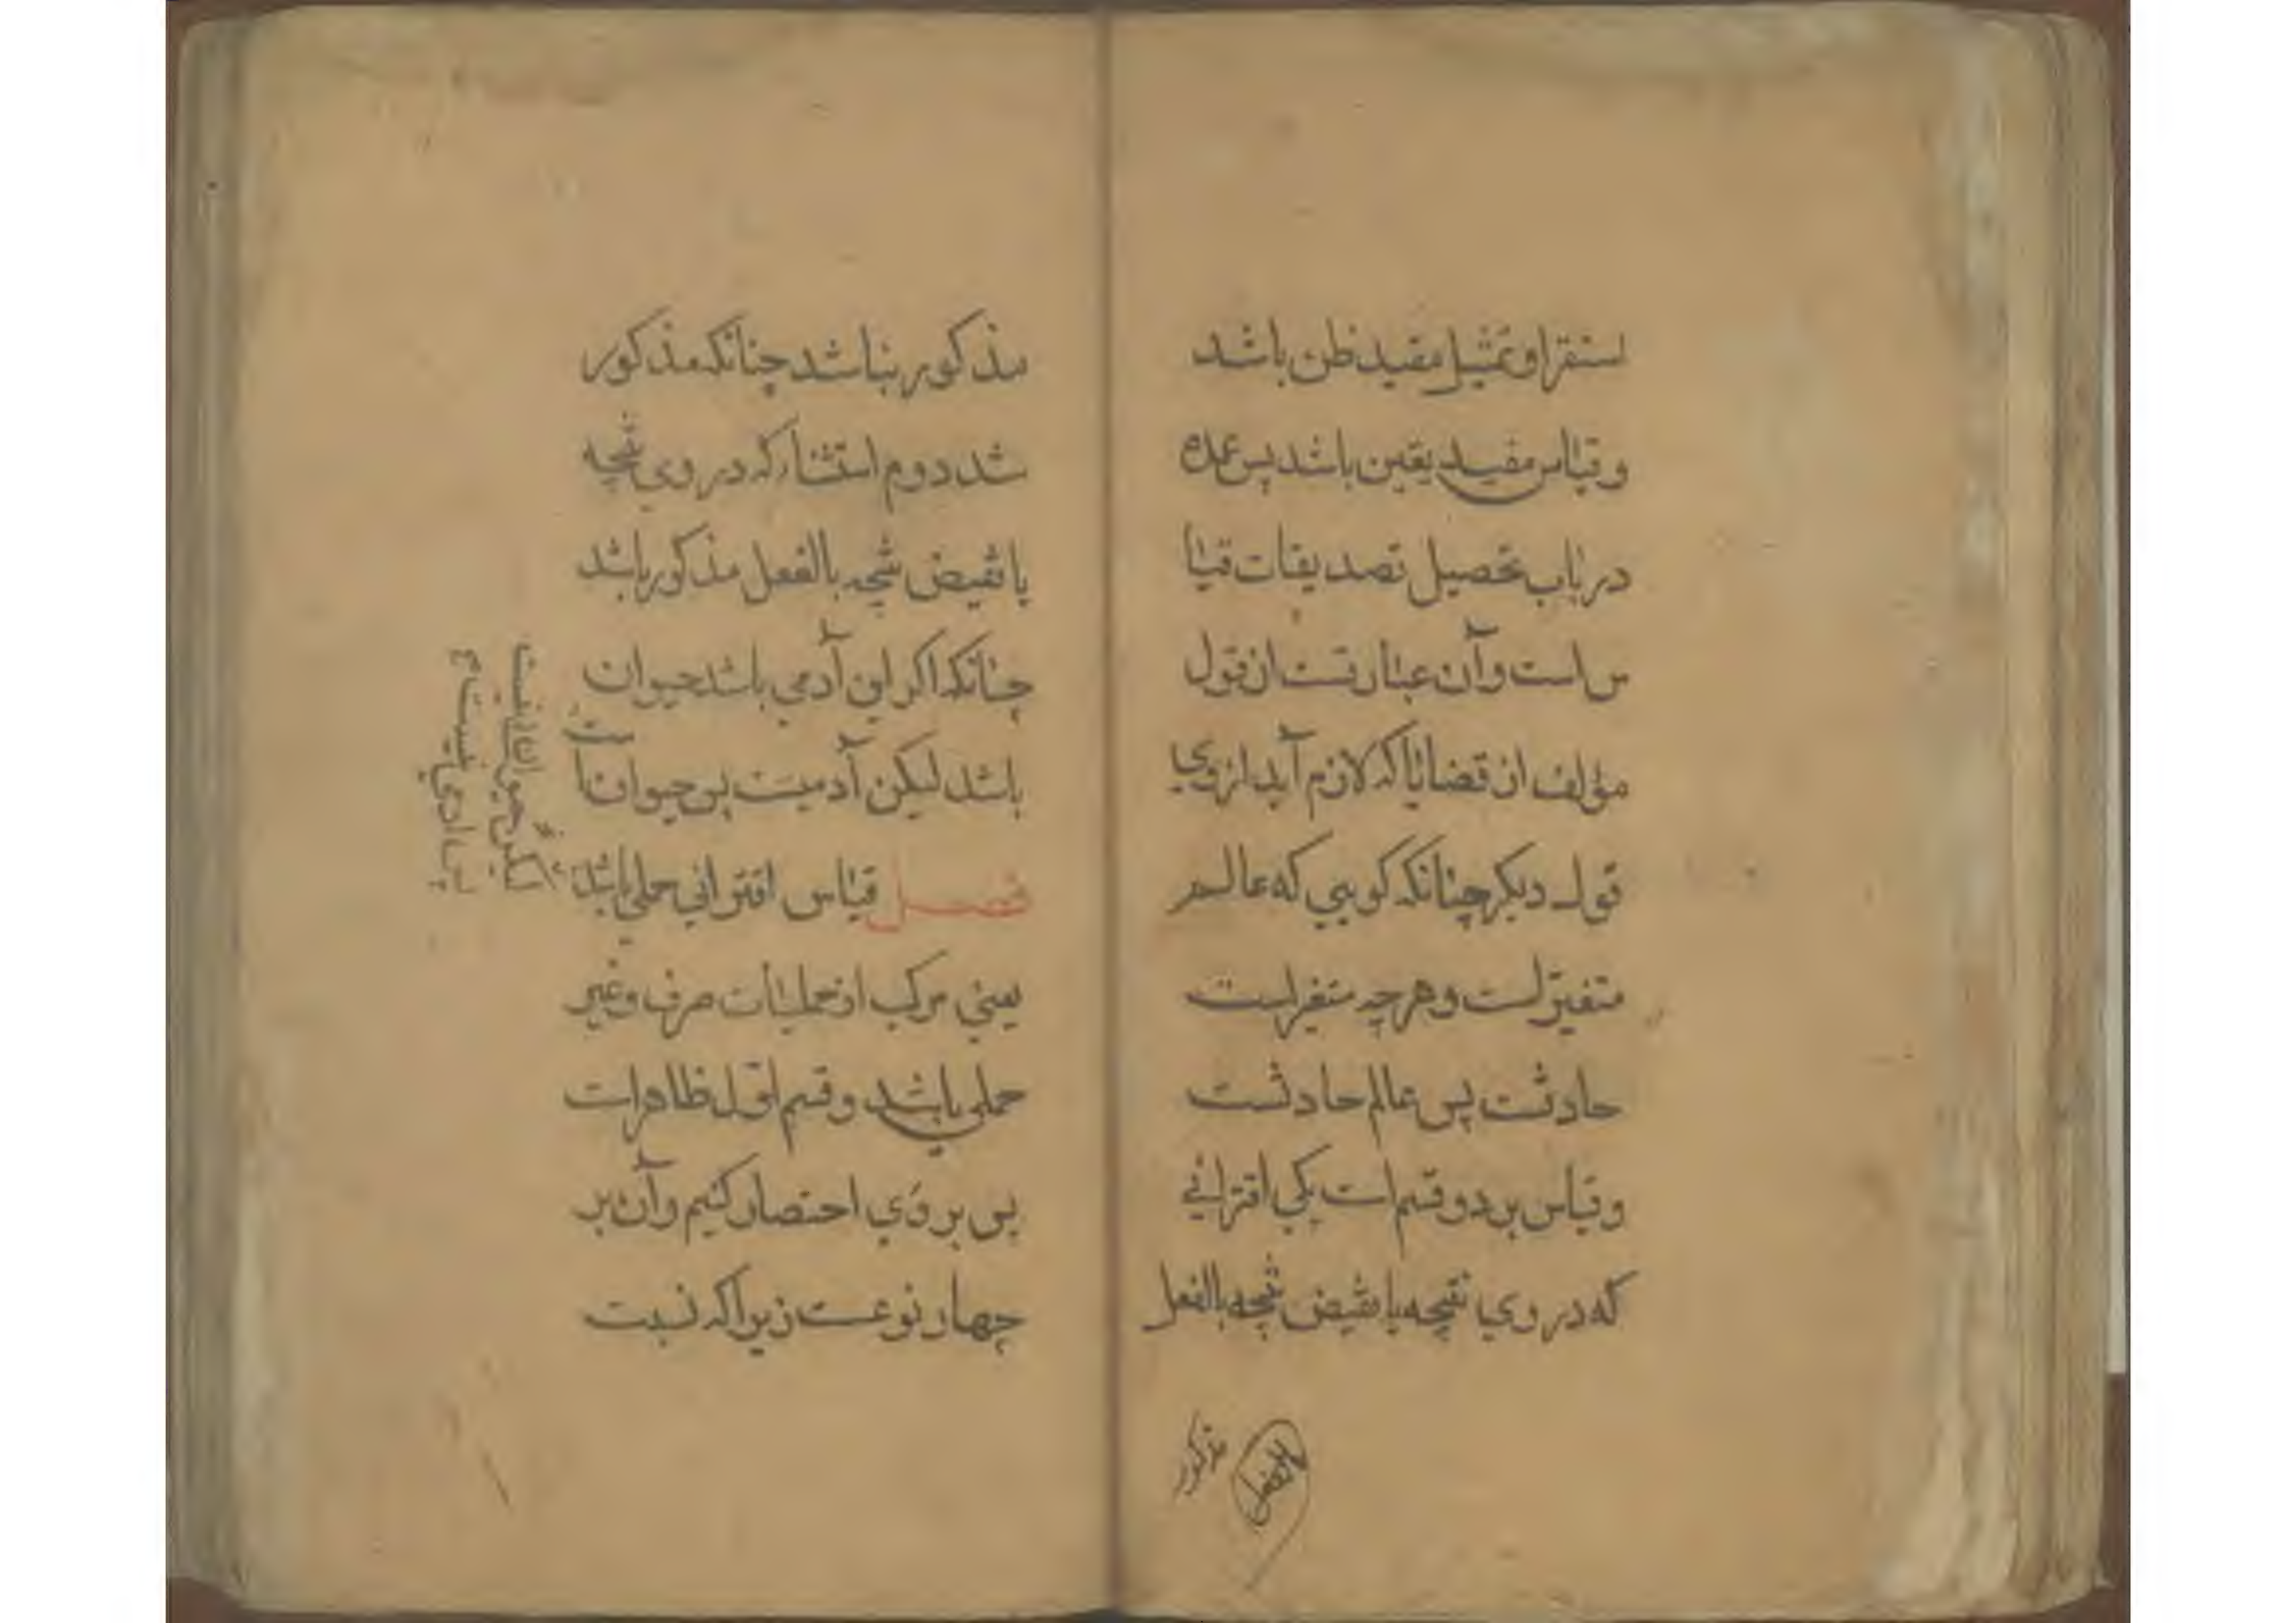 استقرا و تمثیل مفید ظن باشد
و قیاس مفید یقین باشد پس عمده
در باب تحصیل تصدیقات قیا
س است و آن عبارتست از قول
مؤلف از قضایا که لازم آید از وی
قول دیگر چنانکه گویی که عالم
متغیرّست و هر چه متغیراست
حادثست پس عالم حادثست
و قیاس بر دو قسم است یکی اقترانی
که در وی نتیجه یا نقیض نتیجه بالفعل
بالفعل
مذکور
مذکور نباشد چنانکه مذکور
شد دوم استثناء که در وی نتیجه
یا نقیض نتیجه بالفعل مذکور باشد
چنانکه اگر این آدمی باشد حیوان
باشد لیکن آدمیست پس حیوان است
لیکن حیوان نیست
پس آدمی نیست
فصل قیاس اقترانی حملی باشد
یعنی مرکب از حملیات صرف و غیر
حملی باشد و قسم اوّل ظاهراست
پس بر وَی احتصار کنیم و آن بر
چهار نوعست زیرا که نسبت